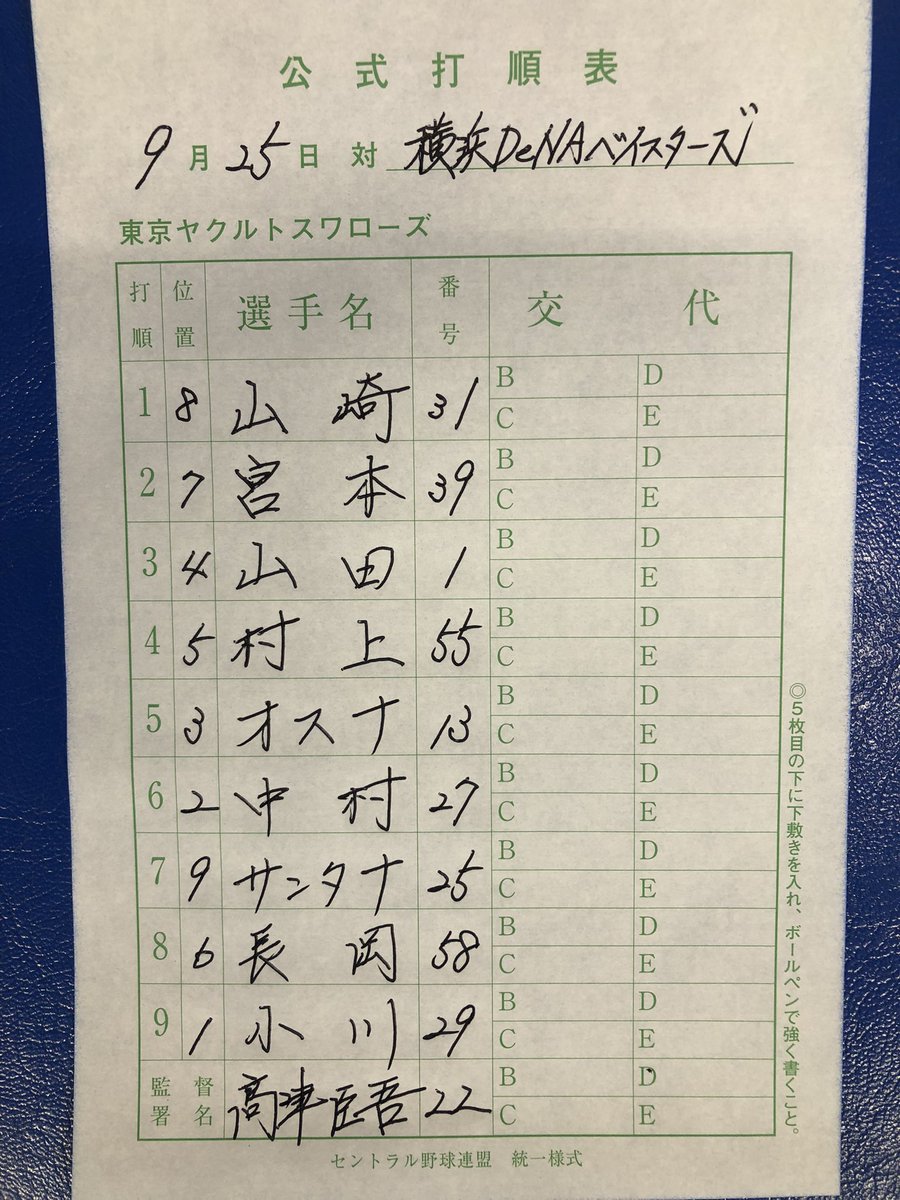 公式打順表
9月25日 対 横浜DeNAベイスターズ
東京ヤクルトスワローズ
打順 位置 選手名 番号 交代
1 8 山崎 31 B D
C E
2 7 宮本 39 B D
C E
3 4 山田 1 B D
C E
4 5 村上 55 B D
C E
5 3 オスナ 13 B D
C E
6 2 中村 27 B D
C E
7 9 サンタナ 25 B D
C E
8 6 長岡 58 B D
C E
9 1 小川 29 B D
C E
監督署名 高津臣吾 22 B D
C E
◎5枚目の下に下敷きを入れ、ボールペンで強く書くこと。
セントラル野球連盟 統一様式